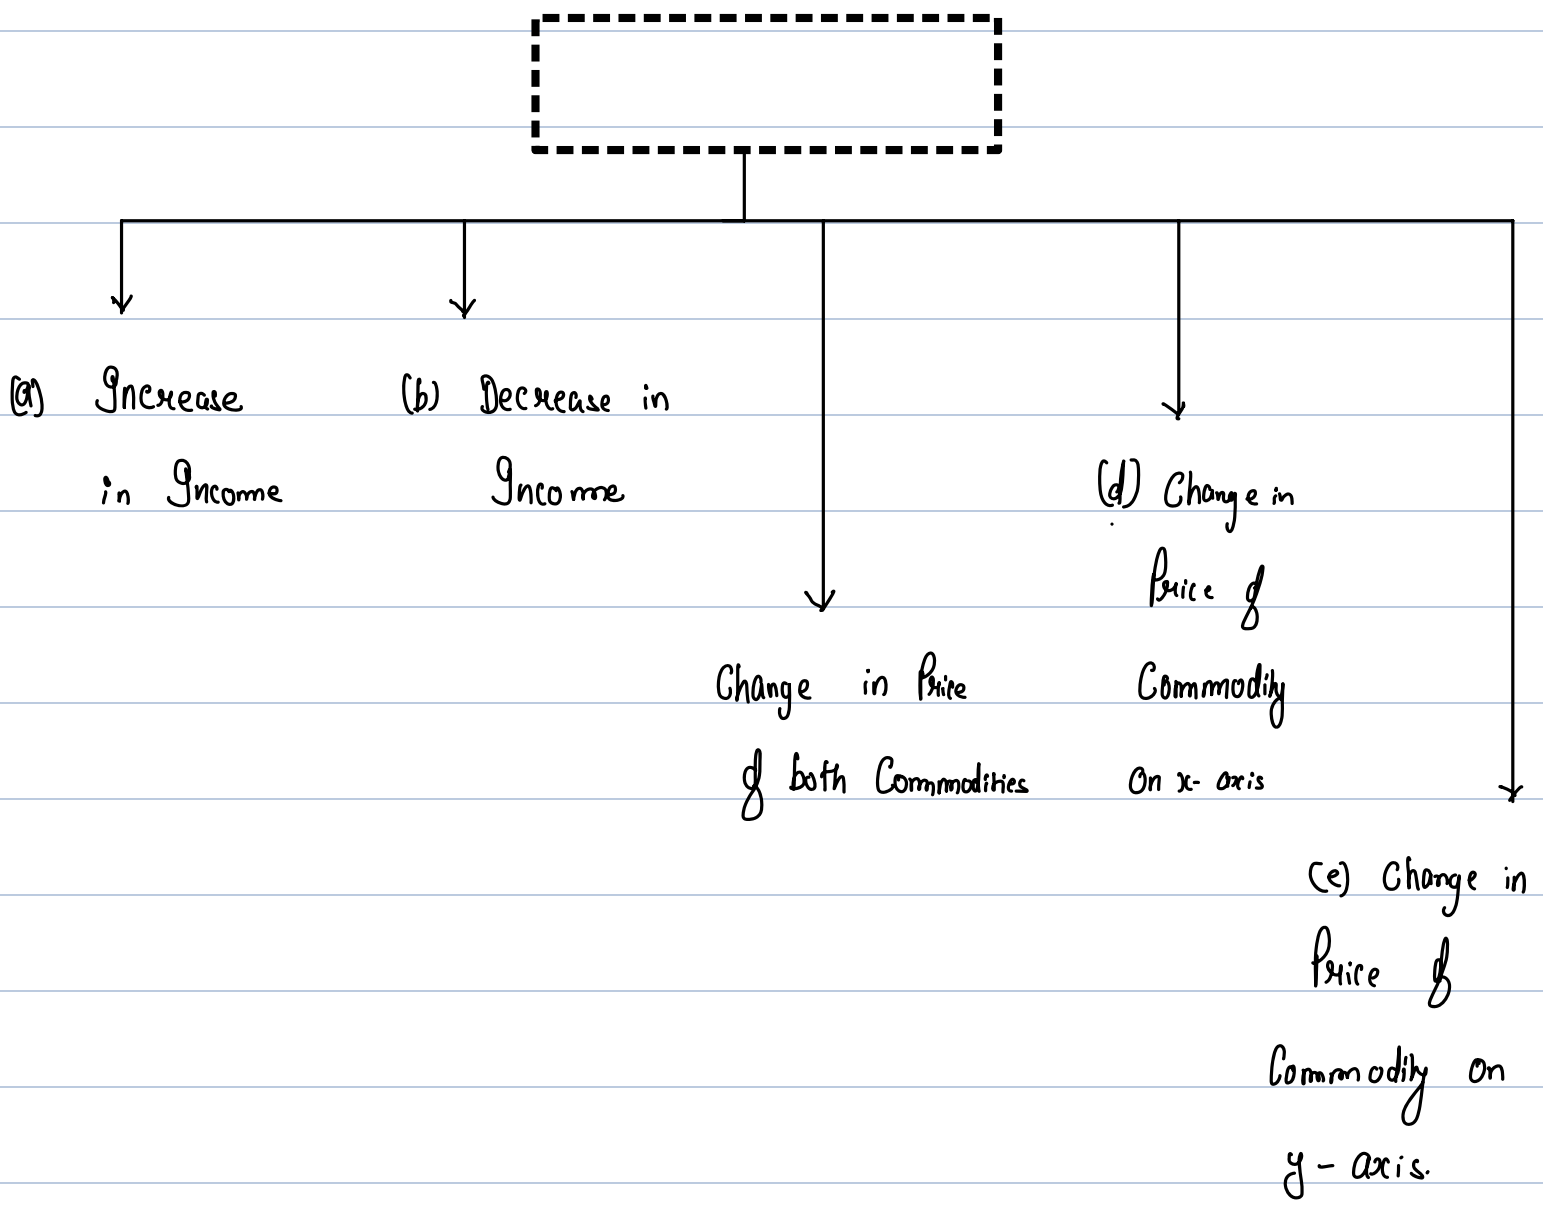 (a) Increase
in Income
(b) Decrease in
Income
Change in Price
of both Commodities
(d) Change in
Price of
Commodity
On x-axis
(e) Change in
Price of
Commodity on
y-axis.